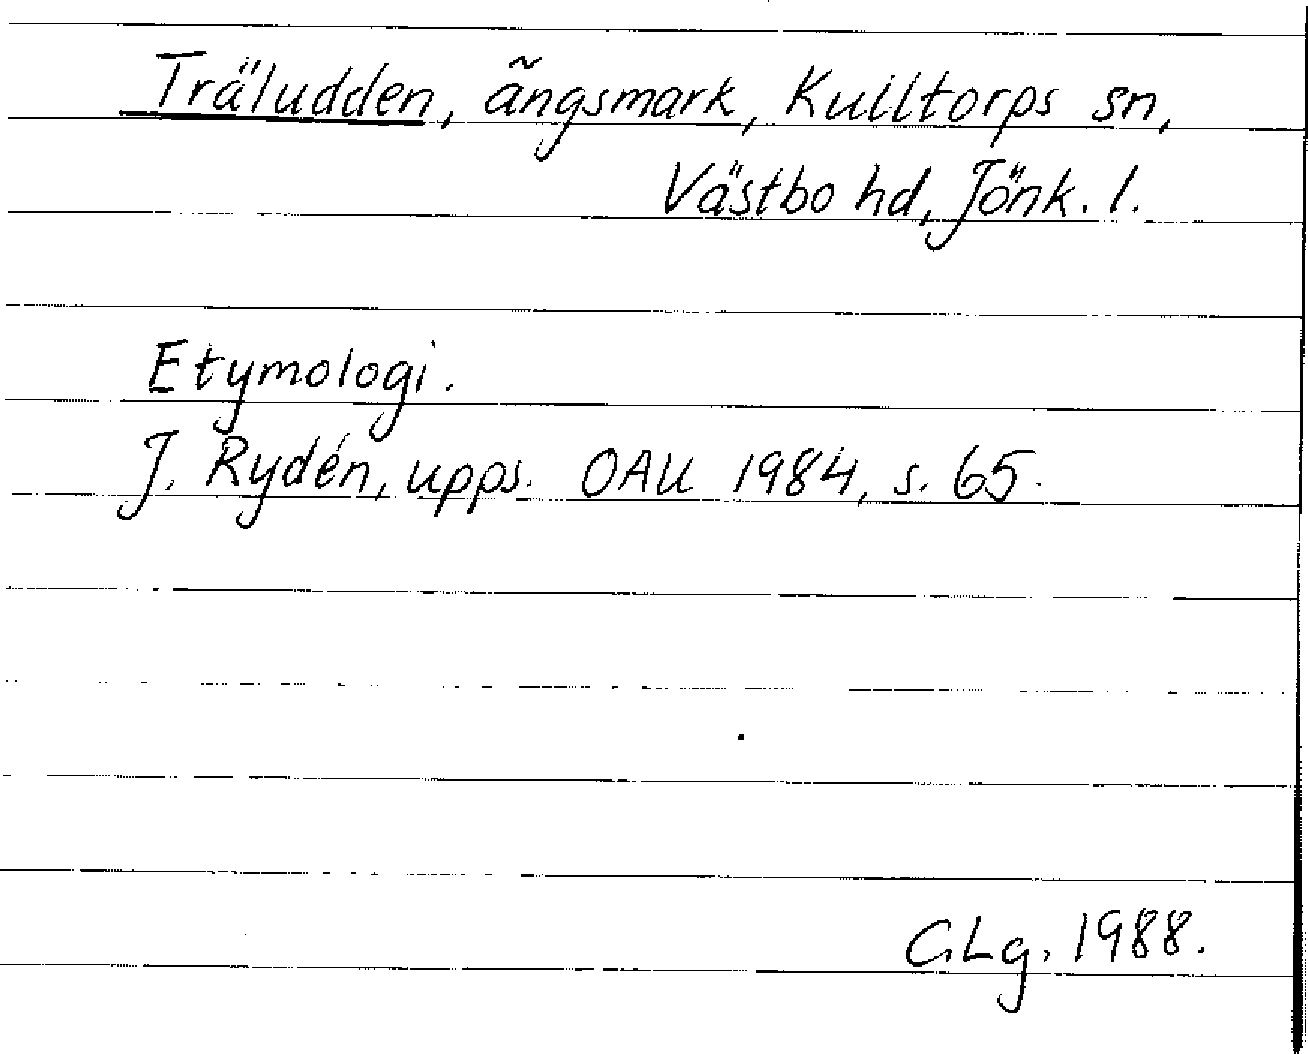 Träludden, ängsmark, Kulltorps sn,
Västbo hd, Jönk. l.
Etymologi.
J. Rydén, upps. OAU 1984, s. 65.
C.Lg. 1988.